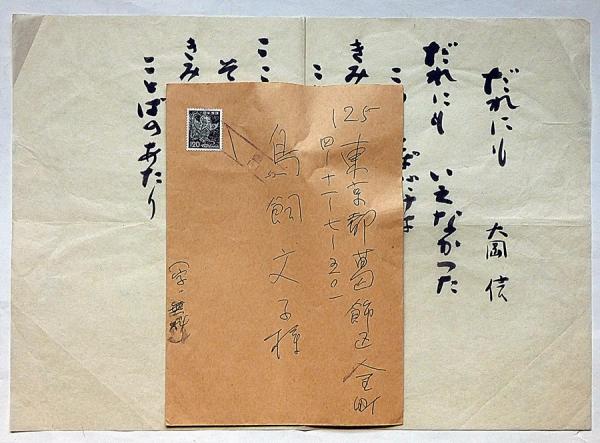 だれにも
大岡信
だれにも いえなかった
こ
きみ
こ
ここ
そ
きみ
ことばのあたり
125 東京都葛飾区金町
四-十一-七-五〇一
鳥飼文子様
120